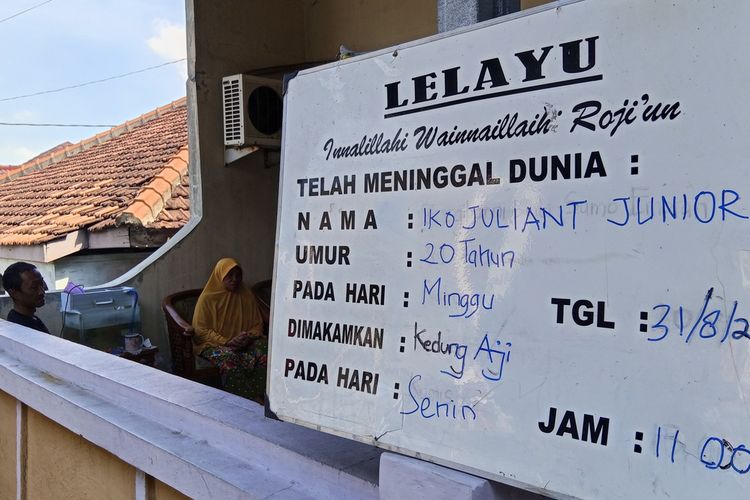 LELAYU
Innalillahi Wainnaillaihi Roji'un
TELAH MENINGGAL DUNIA :
NAMA : IKO JULIANT JUNIOR
UMUR : 20 Tahun
PADA HARI : Minggu TGL : 31/8/2
DIMAKAMKAN : Kedung Aji
PADA HARI : Senin JAM : 11 00